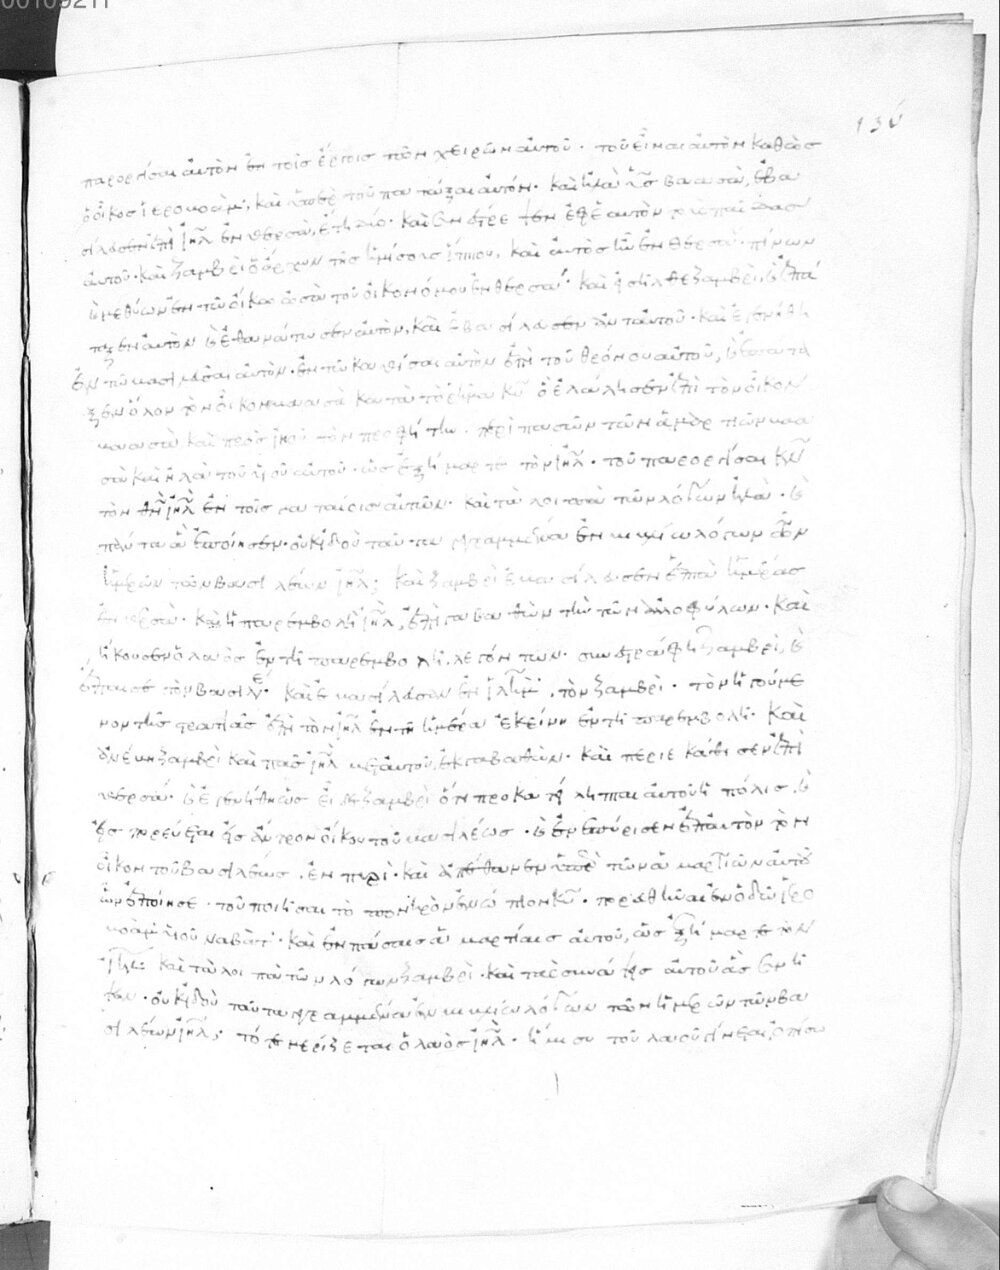 00109211
130
παροργίσαι αὐτὸν ἐν τοῖς ἔργοις τῶν χειρῶν αὐτοῦ · τοῦ εἶναι αὐτὸν καθὼς
ὁ οἶκος ἱεροβοάμ, καὶ ὑπὲρ τοῦ πατάξαι αὐτόν · καὶ ἠλὰ υἱὸς βαασὰ, ἐβα
σίλευσεν ἐπὶ ἰηλ ἐν θερσὰ, ἔτη δύο · καὶ συνέστρεψεν ἐφ' ἑαυτὸν ὁ παῖς
αὐτοῦ · καὶ ζαμβρὶ ὁ ἄρχων τῆς ἡμίσους ἵππου, καὶ αὐτὸς ἦν ἐν θερσὰ · πίνων
μεθύων ἐν τῶ οἴκω ὠσὰ τοῦ οἰκονόμου ἐν θερσά · καὶ εἰσῆλθε ζαμβρὶ, ἐπά
ταξεν αὐτὸν ἐθανάτωσεν αὐτὸν, καὶ ἐβασίλευσεν ἀντ' αὐτοῦ · καὶ ἐγενήθη
ἐν τῶ βασιλεῦσαι αὐτὸν · ἐν τῶ καθίσαι αὐτὸν ἐπὶ τοῦ θρόνου αὐτοῦ, ἐπάτα
ξεν ὅλον τὸν οἶκον βαασὰ κατὰ τὸ ῥῆμα κυ ὃ ἐλάλησεν ἐπὶ τὸν οἶκον
βαασὰ καὶ πρὸς ἰηοὺ τὸν προφήτην · περὶ πασῶν τῶν ἁμαρτιῶν βαα
σὰ καὶ ἠλὰ τοῦ υἱοῦ αὐτοῦ · ὡς ἐξήμαρτε τὸν ἰηλ · τοῦ παροργίσαι κν
τὸν θν ἰηλ ἐν τοῖς ματαίοις αὐτῶν · καὶ τὰ λοιπὰ τῶν λόγων ἠλὰ ·
πάντα ἃ ἐποίησεν · οὐκ ἰδοὺ ταῦτα γεγραμμένα ἐν βιβλίω λόγων τῶν
ἡμερῶν τῶν βασιλέων ἰηλ; καὶ ζαμβρὶ ἐβασίλευσεν ἑπτὰ ἡμέρας
ἐν θερσὰ · καὶ ἡ παρεμβολὴ ἰηλ, ἐπὶ γαβαθὼν τὴν τῶν ἀλλοφύλων · καὶ
ἤκουσεν ὁ λαὸς ἐν τῆ παρεμβολῆ, λεγόντων · συνεστράφη ζαμβρὶ,
ἔπαισε τὸν βασιλέα · καὶ ἐβασίλευσαν ἐν ἰηλ, τὸν ζαμβρὶ · τὸν ἡγούμε
νον τῆς στρατιᾶς ἐπὶ τὸν ἰηλ ἐν τῆ ἡμέρα ἐκείνη ἐν τῆ παρεμβολῆ · καὶ
ἀνέβη ζαμβρὶ καὶ πᾶς ἰηλ μετ' αὐτοῦ, ἐκ γαβαθὼν · καὶ περιεκάθισεν ἐπὶ
θερσά · ἐγενήθη ὡς εἶδε ζαμβρὶ ὅτι προκατείληπται αὐτοῦ ἡ πόλις,
εἰσπορεύεται εἰς ἄντρον οἴκου τοῦ βασιλέως · ἐνεπύρισεν ἐπ' αὐτὸν τὸν
οἶκον τοῦ βασιλέως, ἐν πυρὶ · καὶ ἀπέθανεν ὑπὲρ τῶν ἁμαρτιῶν αὐτοῦ
ὧν ἐποίησε · τοῦ ποιῆσαι τὸ πονηρὸν ἐνώπιον κυ · πορευθῆναι ἐν ὁδῶ ἱερο
βοὰμ υἱοῦ ναβὰτ · καὶ ἐν πάσαις ἁμαρτίαις αὐτοῦ, ὡς ἐξήμαρτε τὸν
ἰηλ: καὶ τὰ λοιπὰ τῶν λόγων ζαμβρὶ · καὶ τὰς συνάψεις αὐτοῦ ἃς συνῆ
ψεν · οὐκ ἰδοὺ ταῦτα γεγραμμένα ἐν βιβλίω λόγων τῶν ἡμερῶν τῶν βα
σιλέων ἰηλ; τότε μερίζεται ὁ λαὸς ἰηλ · ἥμισυ τοῦ λαοῦ γίνεται ὀπίσω